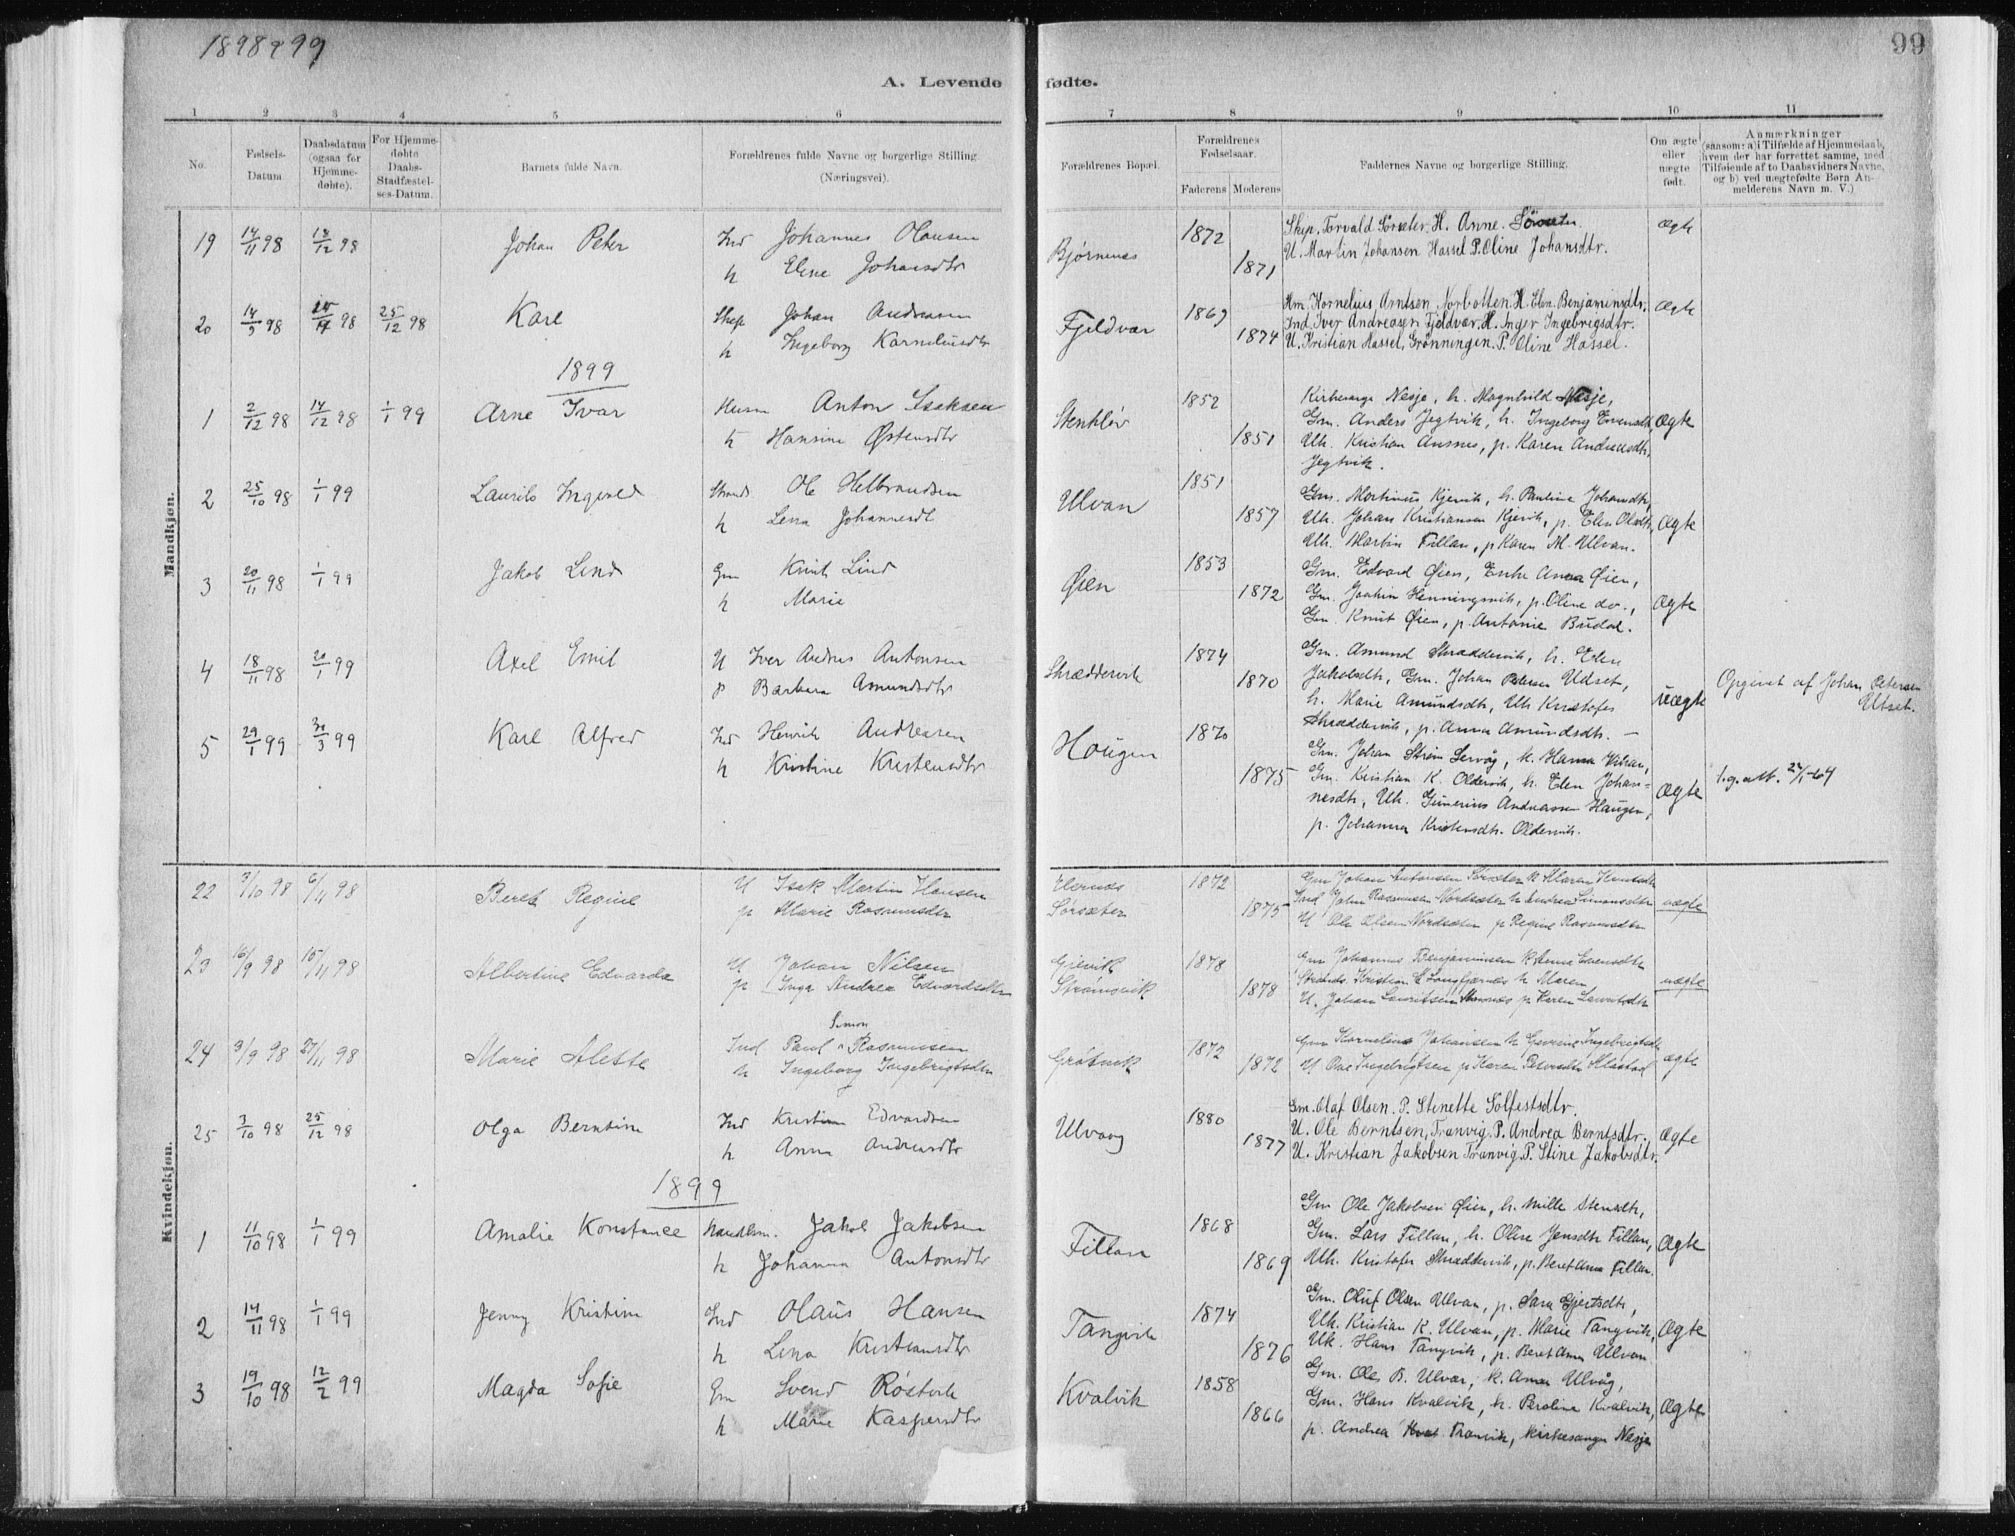 1898 & 99
99
A. Levende fødte.
1 2 3 4 5 6 7 8 9 10 11
No.
Fødsels-
Datum
Daabsdatum
(ogsaa for
Hjemme-
døbte).
For Hjemme-
døbte
Daabs-
Stadfæstel-
ses-Datum.
Barnets fulde Navn.
Forældrenes fulde Navne og borgerlige Stilling.
(Næringsvei).
Forældrenes Bopæl.
Forældrenes
Fødselsaar.
Faderens Moderens
Faddernes Navne og borgerlige Stilling.
Om ægte
eller
uægte
født.
Anmærkninger
(saasom: a) i Tilfælde af Hjemmedaab,
hvem der har forrettet samme, med
Tilføiende af to Daabsvidners Navne,
og b) ved uægtefødte Børn An-
melderens Navn m. V.)
Mandkjøn.
19 14/11 98 18/12 98 Johan Peter Ind Johannes Olausen Bjørnenes 1872 Skip. Torvald Sørsæter, H. Anne Sörsæter. ægte
h Eline Johansdtr 1871 U. Martin Johansen Hassel P. Oline Johansdtr.
20 14/9 98 98 25/12 98 Karl Skip Johan Andreasen Fjeldvær 1869 Hm. Kornelius Arntsen Norbotten. H. Elen Benjaminsdtr. Ægte
h Ingeborg Korneliusdtr 1874 Ind. Iver Andreasen Fjeldvær. H. Inger Ingebrigsdtr.
U. Kristian Hassel, Grønningen. P. Oline Hassel.
1899
1 2/12 98 14/12 98 1/1 99 Arne Ivar Husm Anton Isaksen Stenkløv 1852 Kirkesange Nesje, h. Magnhild Nesje,
h Hansine Østensdtr 1851 Gm. Anders Jegtvik, h. Ingeborg Evensdtr, Ægte
Uk. Kristian Ansnes, p. Karen Andreasdtr,
Jegtvik.
2 25/10 98 1/1 99 Laurits Ingvald Strands Ole Helbrandsen Ulvan 1851 Gm. Martinus Kjervik, h. Pauline Johansdtr,
h Lena Johannesdt 1857 Uk. Johan Kristiansen Kjervik, p. Elen Olsdtr, Ægte
Uk. Martin Fillan, p Karen M. Ulvan.
3 20/11 98 1/1 99 Jakob Lind Gm Knut Lind Øien 1853 Gm. Edvard Øien, Enke Anna Øien,
h Marie 1872 Gm. Joakim Henningsvik, p. Oline do., Ægte
Gm. Knut Øien, p. Antonie Budal.
4 18/11 98 20/1 99 Axel Emil U Iver Andres Antonsen Skræddervik 1874 Gm. Amund Skræddervik, h. Elen
p Barbara Amundsdtr 1870 Jakobsdtr, Gm. Johan Petersen Udset, uægte Opgivet af Johan Petersen
h. Marie Amundsdtr, Uk Kristofer Utset.
Skræddervik, p. Anna Amundsdtr. —
5 29/1 99 30/3 99 Karl Alfred Ind Henrik Andreasen Hougen 1870 Gm. Johan Strøm Servåg, h. Hanna Vikan,
h Kristine Kristensdtr 1875 Gm. Kristian K. Oldervik, h. Elen Johan- Ægte
nesdtr, Uk. Gunerius Andreassen Haugen,
p. Johanna Kristensdtr. Oldervik.
Kvindekjøn.
22 3/10 98 6/11 98 Beret Regine U Isak Martin Hansen 1872 Gm Johan Antonsen Sørsæter h Maren Knutsdtr
p Marie Rasmusdtr Sørsæter 1875 Ind John Rasmusen Nordsæter h Andrea Simonsdtr uægte
U Ole Olsen Nordsæter p Regine Rasmusdtr
23 16/9 98 15/11 98 Albertine Edvarda U Johan Nilsen Gjevik 1878 Gm Johannes Benjaminsen h Anne Evensdtr
p Inga Andrea Edvardsdtr Strømsvik 1878 Strands Kristian Langfjærnes h Maren uægte
U. Johan Lauritsen p Karen Lauritsdtr
24 9/9 98 27/11 98 Marie Alette Ind Paul Simon Rasmusen Grøtvik 1872 Gm Kornelius Johansen h Gurine Ingebrigtsdtr
h Ingeborg Ingebrigtsdtr 1872 U Ingebrigtsen p Karen ægte
25 3/10 98 25/12 98 Olga Berntine Ind Kristian Edvardsen Ulvaag 1880 Gm. Olaf Olsen. P. Stenette Solfestsdtr.
h Anna Andreasdtr 1877 U. Ole Berntsen, Tranvig P. Andrea Berntsdtr. Ægte
U. Kristian Jakobsen Tranvig. P. Stine Jakobsdtr.
1899
1 11/10 98 1/1 99 Amalie Konstance Handelsm. Jakob Jakobsen Fillan 1868 Gm Ole Jakobsen Øien, h. Mille Stensdtr,
h Johanna Antonsdtr 1869 Gm. Lars Fillan, h. Oline Jensdtr Fillan, Ægte
Uk. Kristofer Skræddervik, p. Beret Anna Fillan.
2 14/11 98 1/1 99 Jenny Kristine Ind Olaus Hansen Tangvik 1874 Gm. Oluf Olsen Ulvan, p. Sara Gjertsdtr,
h Lina Kristiansdtr 1876 Uk. Kristian K. Ulvan, p. Marie Tangvik, Ægte
Uk. Hans Tangvik, p. Beret Anna Ulvan.
3 19/10 98 12/2 99 Magda Sofie Gm Svend Røstvik Kvalvik 1858 Gm. Ole B. Ulvær, h. Anna Ulvåg,
h Marie Kaspersdtr 1866 Gm. Hans Kvalvik, h. Paroline Kvalvik, Ægte
p. Andrea Tranvik, Kirkesanger Nesje